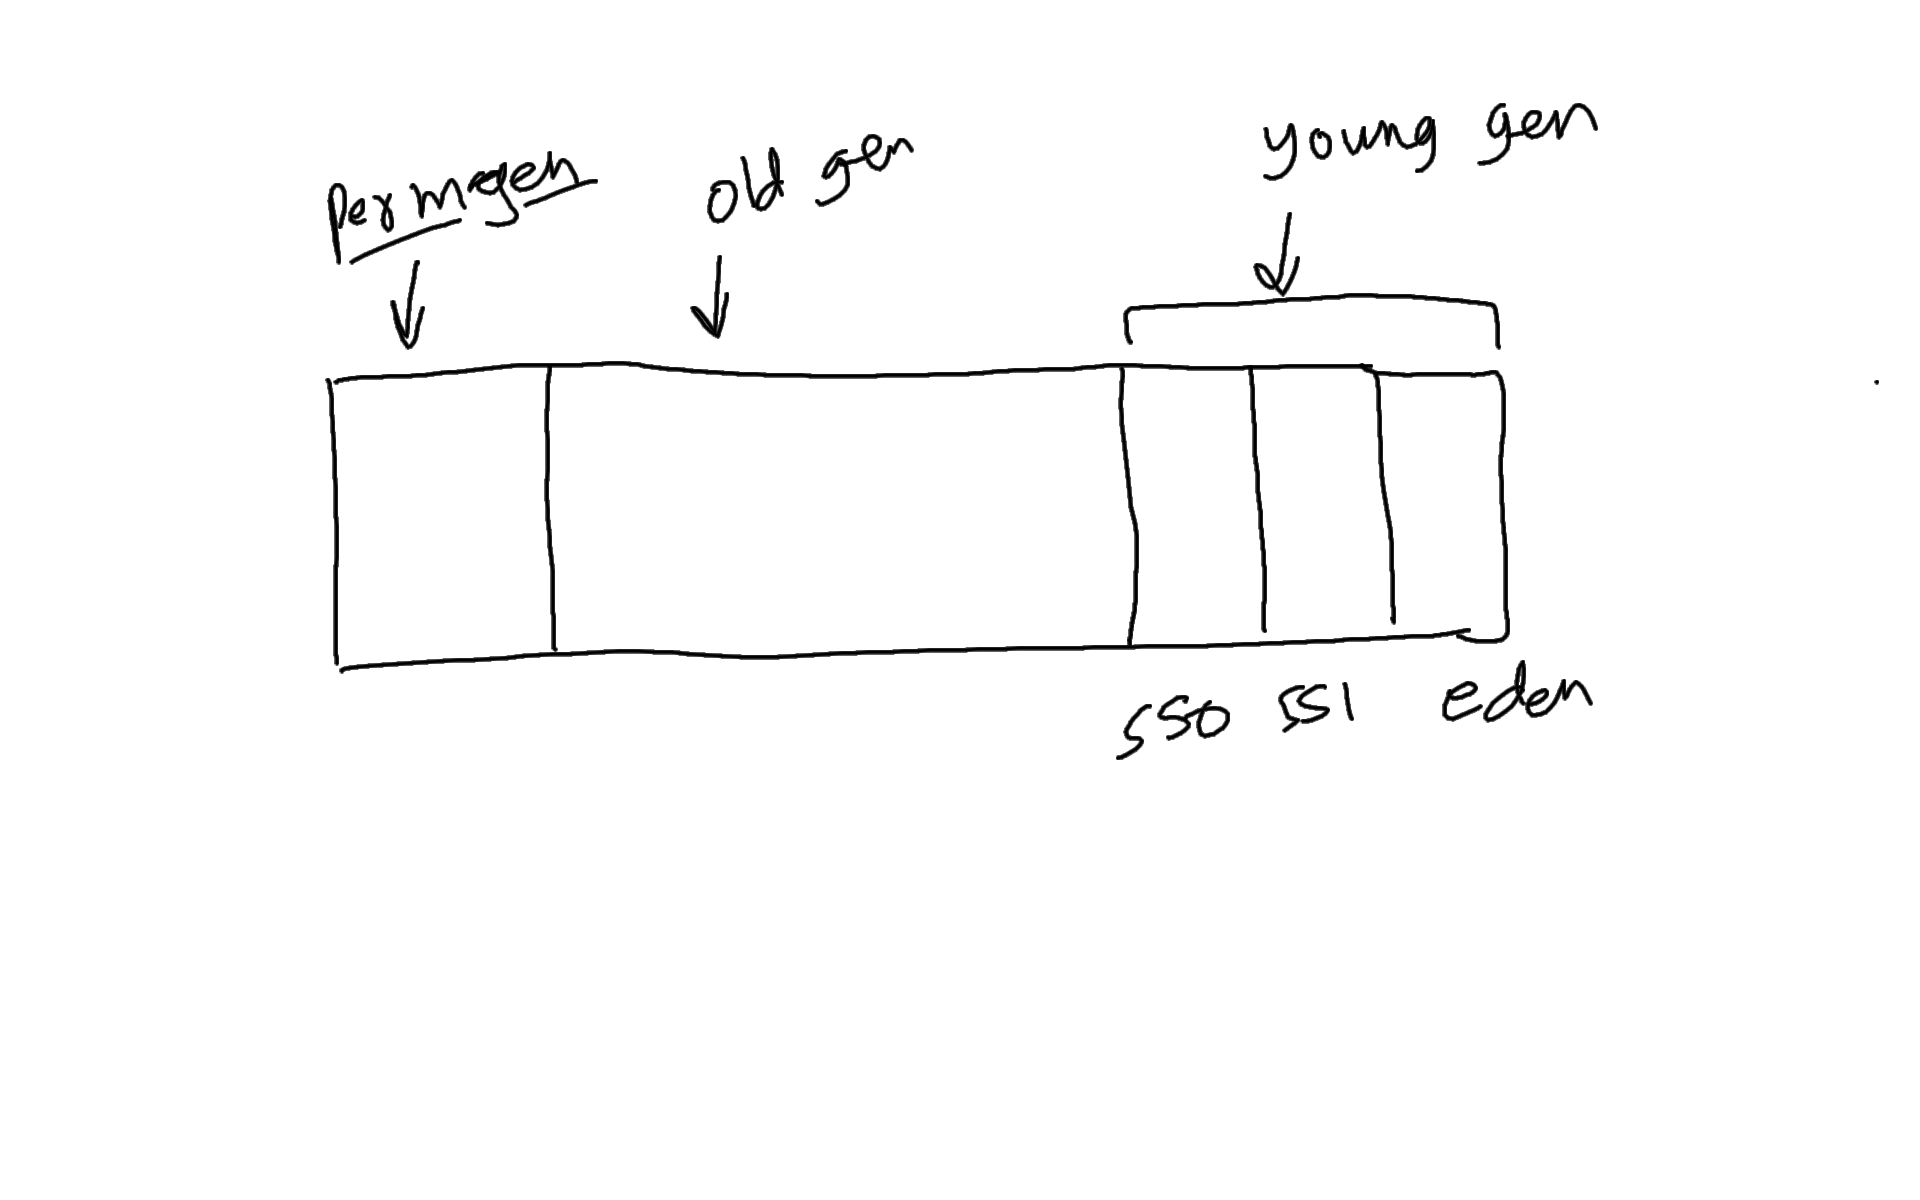 permgen
old gen
young gen
SS0 SS1 eden